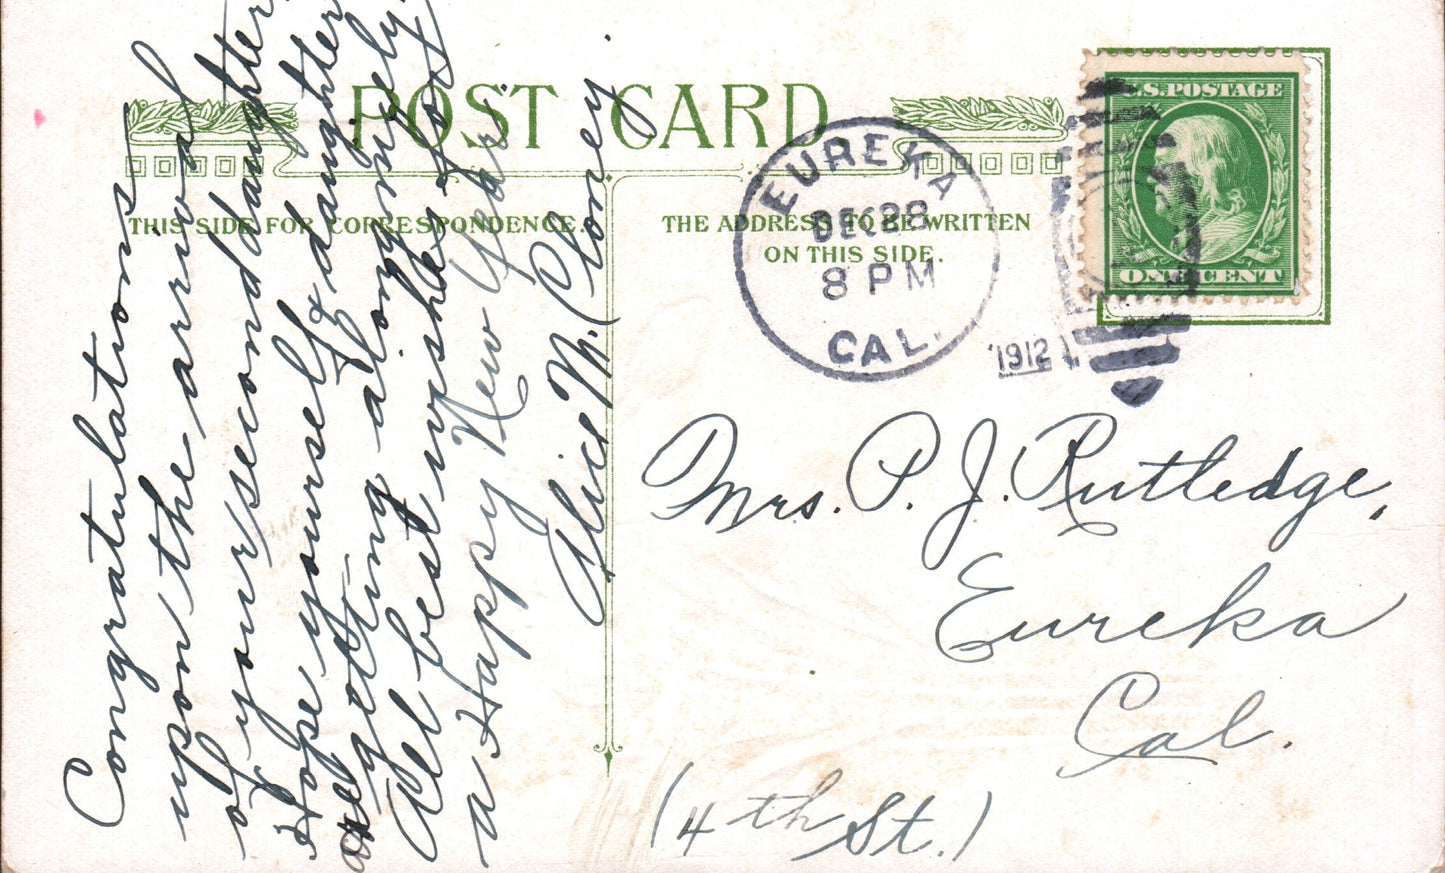 POST CARD
THIS SIDE FOR CORRESPONDENCE.
THE ADDRESS TO BE WRITTEN
ON THIS SIDE.
U.S. POSTAGE
ONE CENT
EUREKA
DEC 28
8 PM
CAL.
1912
Congratulations
upon the arrival
of your second daughter.
Hope yourself & daughter
are getting along nicely.
All best wishes for
a Happy New Year
Alice M. Cloney.
Mrs. P. J. Rutledge,
Eureka
Cal.
(4th St.)